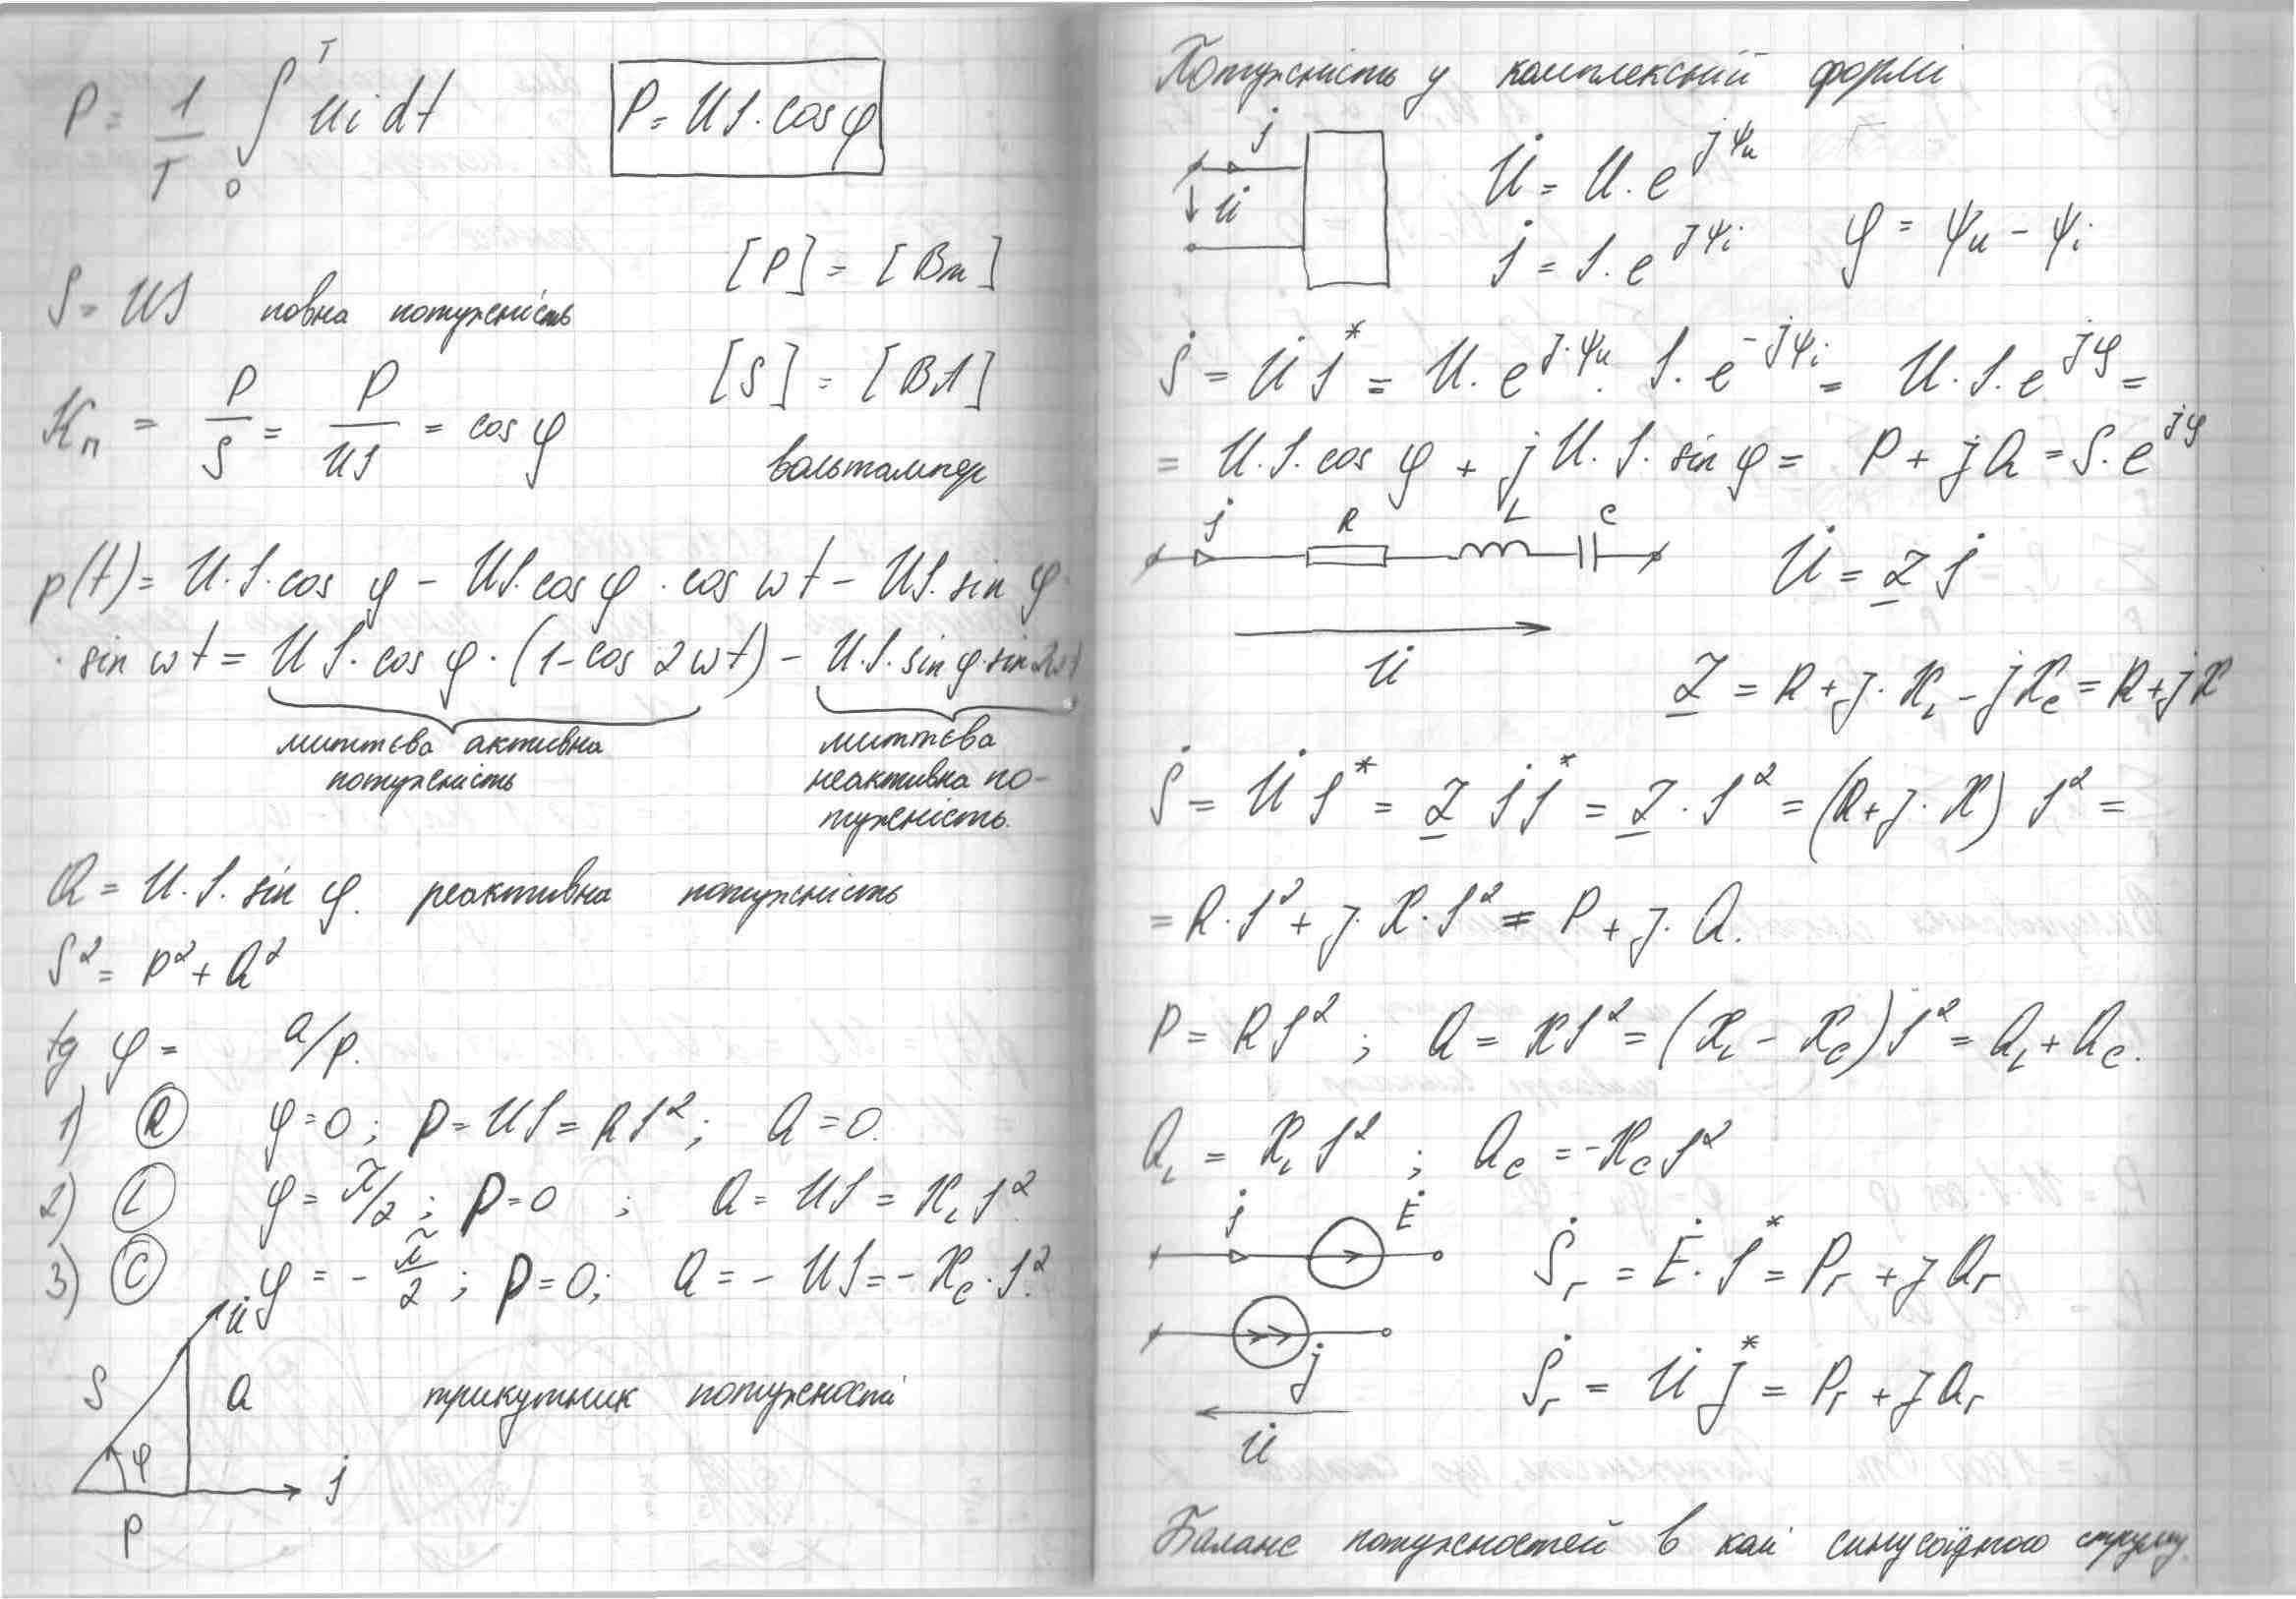 P = 1/T ∫₀ᵀ ui dt
P = UI·cos φ
[P] = [Вт]
S = UI повна потужність
[S] = [ВА]
Kп = P/S = P/UI = cos φ
вольтампер
p(t) = U·I·cos φ − UI·cos φ·cos ωt − UI·sin φ·
·sin ωt = UI·cos φ·(1−cos 2ωt) − U·I·sin φ·sin 2ωt
миттєва активна
потужність
миттєва
неактивна по-
тужність.
Q = U·I·sin φ. реактивна потужність
S² = P² + Q²
tg φ = Q/P.
1) R φ=0; P=UI=RI²; Q=0.
2) L φ=π/2; P=0; Q=UI=X_L I²
3) C φ=−π/2; P=0; Q=−UI=−X_C·I².
U̇
S
Q
трикутник потужності
φ
İ
P
Потужність у комплексній формі
İ
U̇
U̇ = U·e^{jψu}
İ = I·e^{jψi}
φ = ψu − ψi
Ṡ = U̇ I* = U·e^{j·ψu}·I·e^{−jψi} = U·I·e^{jφ} =
= U·I·cos φ + jU·I·sin φ = P + jQ = S·e^{jφ}
İ R L C
U̇ = Z İ
U̇
Z = R + j·X_L − jX_C = R + jX
Ṡ = U̇ I* = Z İ I* = Z·I² = (R + j·X) I² =
= R·I² + j·X·I² = P + j·Q.
P = RI²; Q = XI² = (X_L − X_C)I² = Q_L + Q_C.
Q_L = X_L I²; Q_C = −X_C I²
İ Ė
Ṡг = Ė·I* = Pг + jQг
J̇
Ṡг = U̇ J* = Pг + jQг
U̇
Баланс потужностей в колі синусоїдного струму.